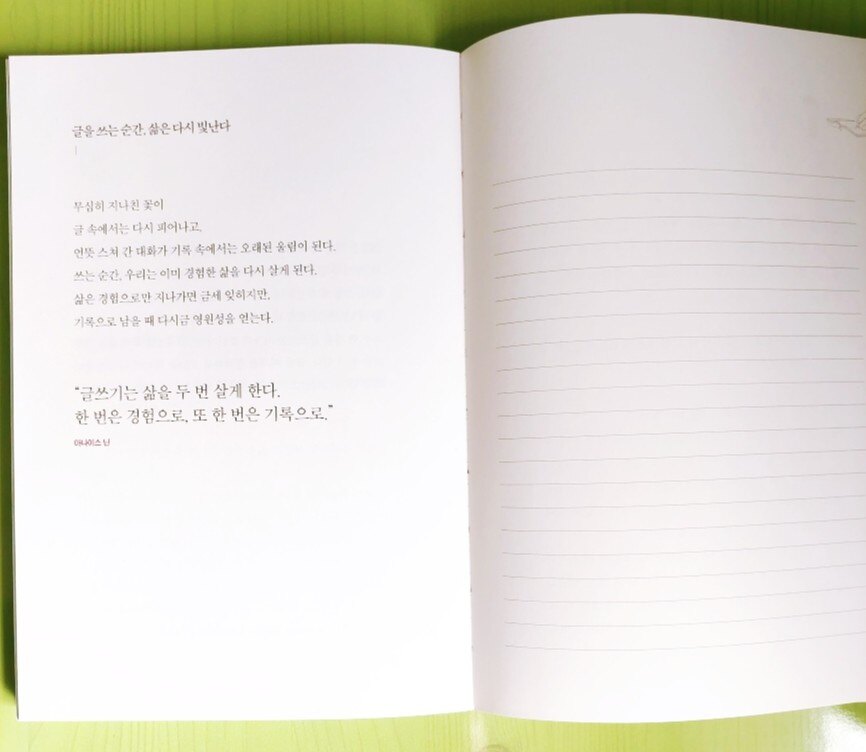 글을 쓰는 순간, 삶은 다시 빛난다
무심히 지나친 꽃이
글 속에서는 다시 피어나고,
언뜻 스쳐 간 대화가 기록 속에서는 오래된 울림이 된다.
쓰는 순간, 우리는 이미 경험한 삶을 다시 살게 된다.
삶은 경험으로만 지나가면 금세 잊히지만,
기록으로 남을 때 다시금 영원성을 얻는다.
“글쓰기는 삶을 두 번 살게 한다.
한 번은 경험으로, 또 한 번은 기록으로.”
아나이스 닌